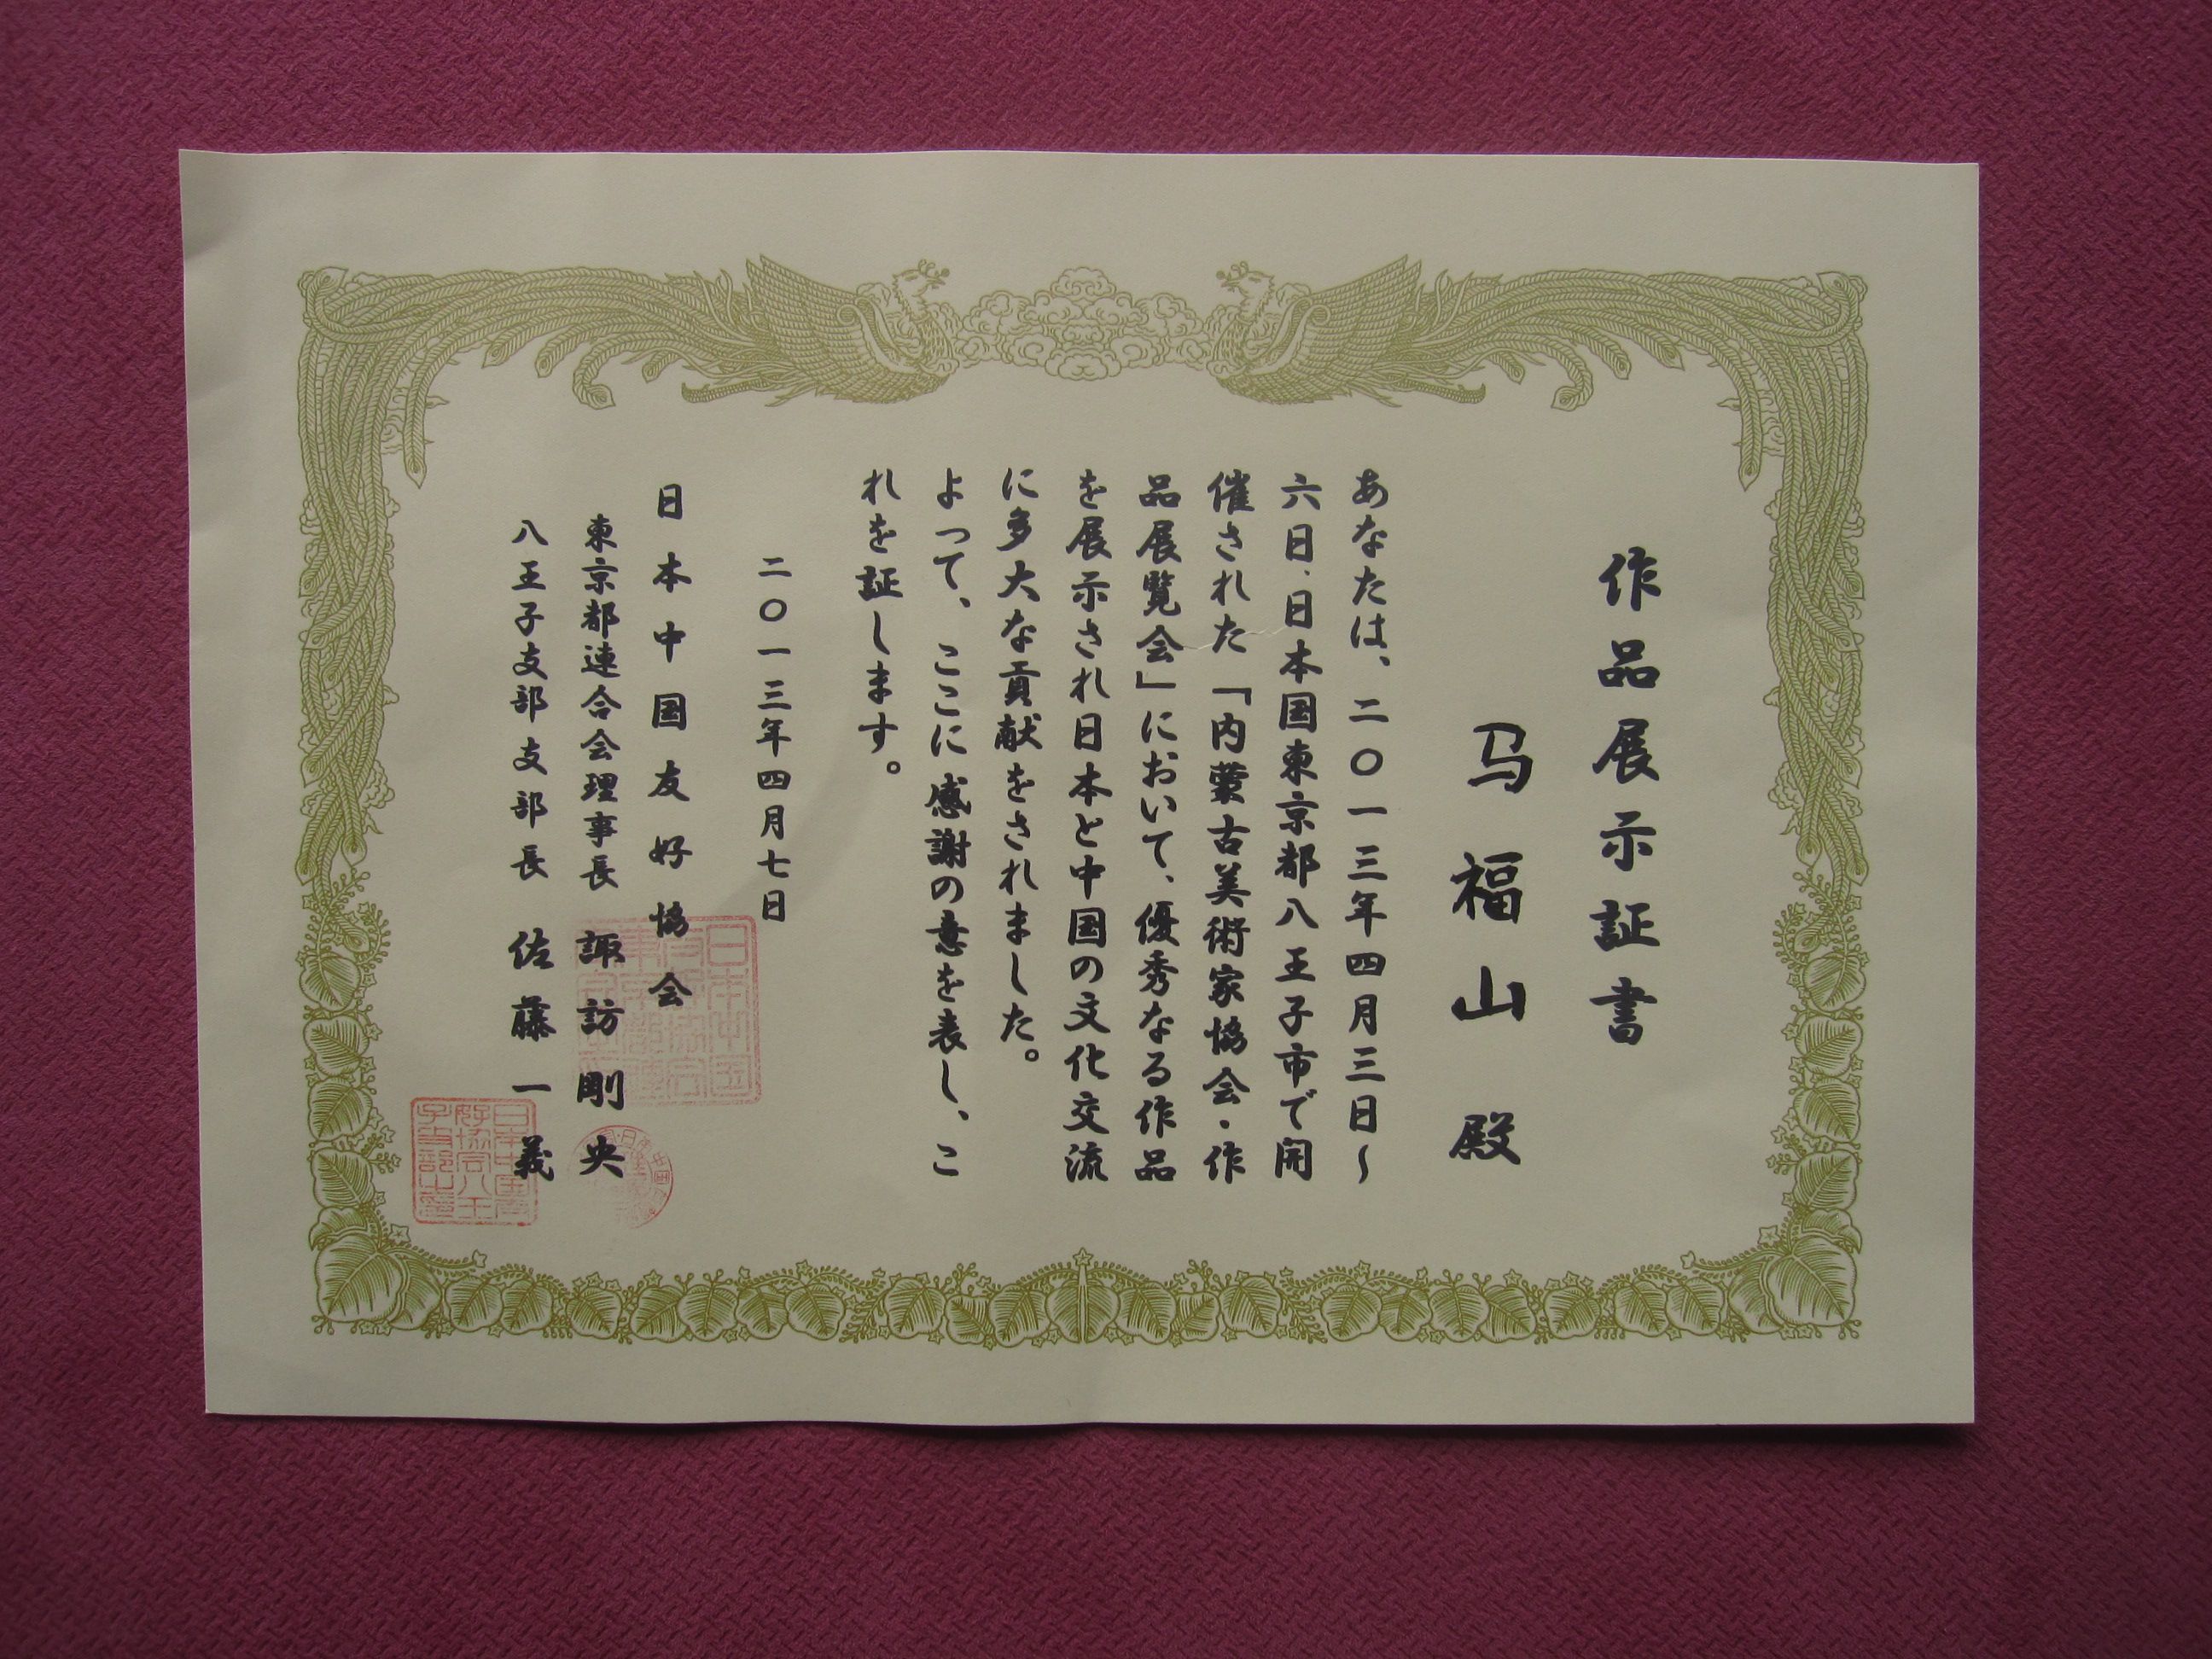 作品展示証書
马福山殿
あなたは、二〇一三年四月三日~
六日、日本国東京都八王子市で開
催された「内蒙古美術家協会・作
品展覧会」において、優秀なる作品
を展示され日本と中国の文化交流
に多大な貢献をされました。
よって、ここに感謝の意を表し、こ
れを証します。
二〇一三年四月七日
日本中国友好協会
東京都連合会理事長 諏訪剛央
八王子支部支部長 佐藤一義